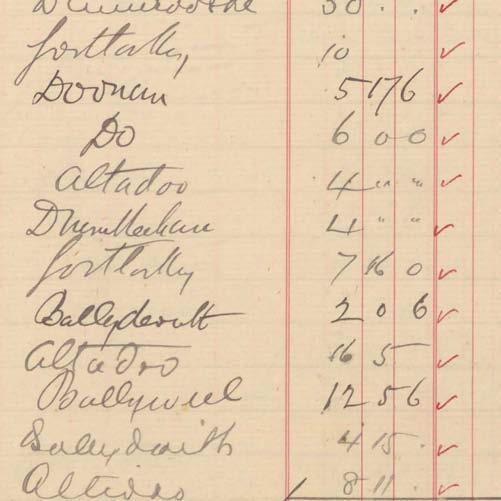 30 . .
10
Doonan 5 17 6
Do 6 0 0
Altadoo 4 " "
4 " "
7 16 0
Ballydevitt 2 0 6
Altadoo 16 5
Ballyweel 12 5 6
Ballydevitt 4 15 .
Altidoo 8 11 .